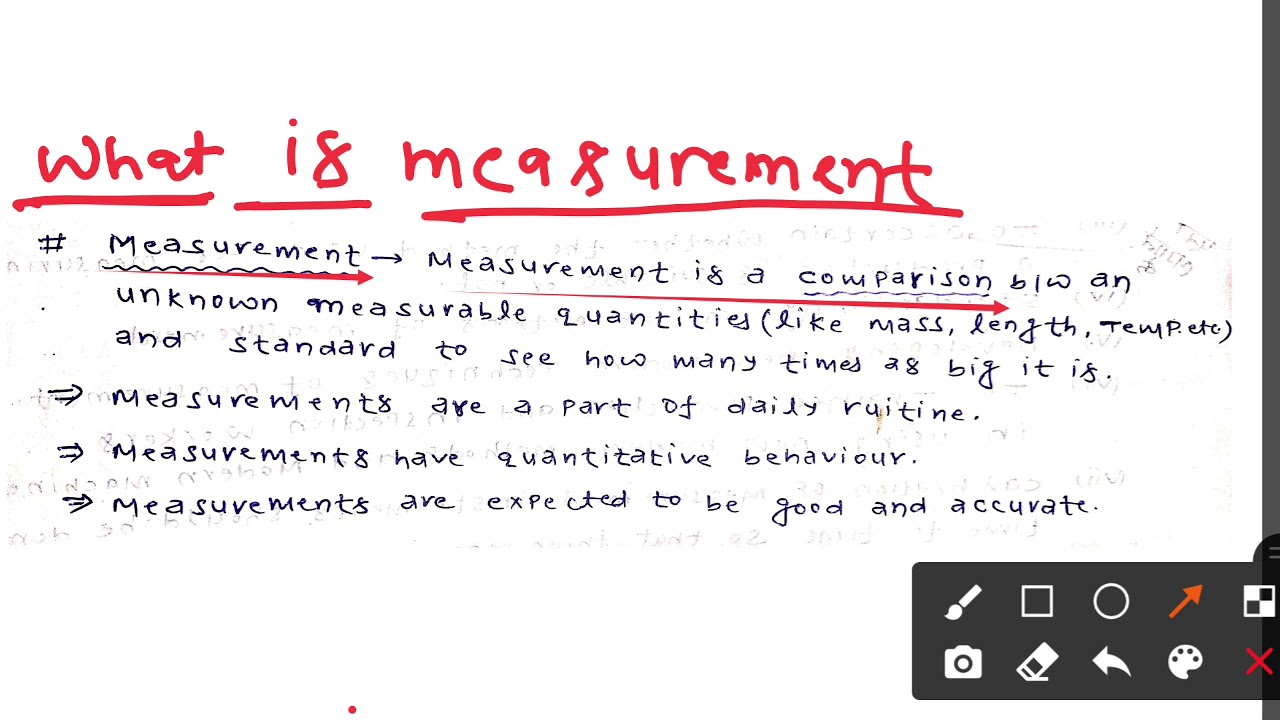 What is measurement
# Measurement → Measurement is a comparison b/w an
unknown measurable quantities (like mass, length, Temp. etc)
and standard to see how many times as big it is.
⇒ Measurements are a part of daily ruitine.
⇒ Measurements have quantitative behaviour.
⇒ Measurements are expected to be good and accurate.